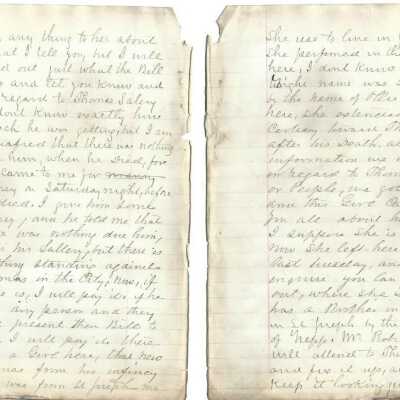 any thing to her about
at I tell you, but I will
d out just what the Bill
and let you know and
regard to Thomas Salery
don't know exactly how
ch he was getting, but I am
afraid that there was nothing
him, when he died, for
came to me for money
ey on Saturday night, before
died. I give him some
ey, and he told me that
was nothing due him,
his Sallery, but there is
thing standing against
in the City, Now, if
is, I will pay it, if she
any person and they
present their Bill to
I will pay it. there
a Girl here, that new
from his infancy
was from St Joseph Mo
She use to live in
She performed in th
here, I dont know
right name was
by the name of
here, She
toward
after his Death, a
information we
in regard to Thom
or People, we go
and this Girl
I'm all about h
I suppose She is
Now She left here
last Tuesday, an
inquire you can
out, where She is
has a Brother in
in St Joseph by the
of Mr Rob
will attend to the
and fix it up, a
keep it looking